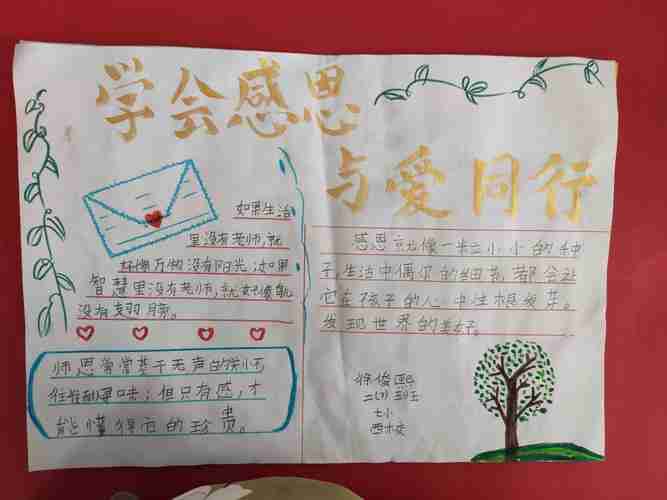 学会感恩
与爱同行
如果生活
里没有老师,就
好像万物没有阳光;如果
智慧里没有老师,就好像航
没有翅膀。
师恩常常基于无声的
往往 ;但只有感,才
能懂得它的珍贵。
感恩就像一粒小小的种
子,生活中偶尔的细节,都会让
它在孩子的心中生根发芽。
发现世界的美好。
徐俊熙
二(7)班
七小
西校